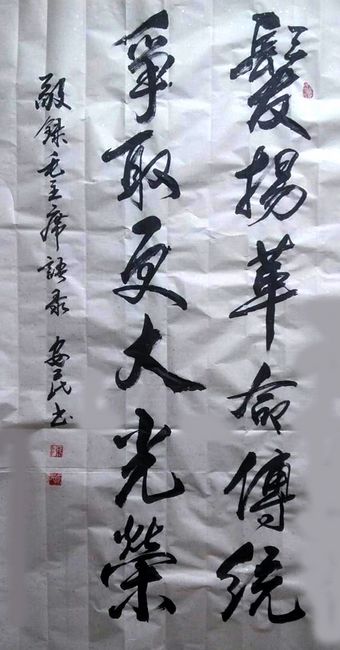 髮揚革命傳統
爭取更大光榮
敬錄毛主席語录 安民书